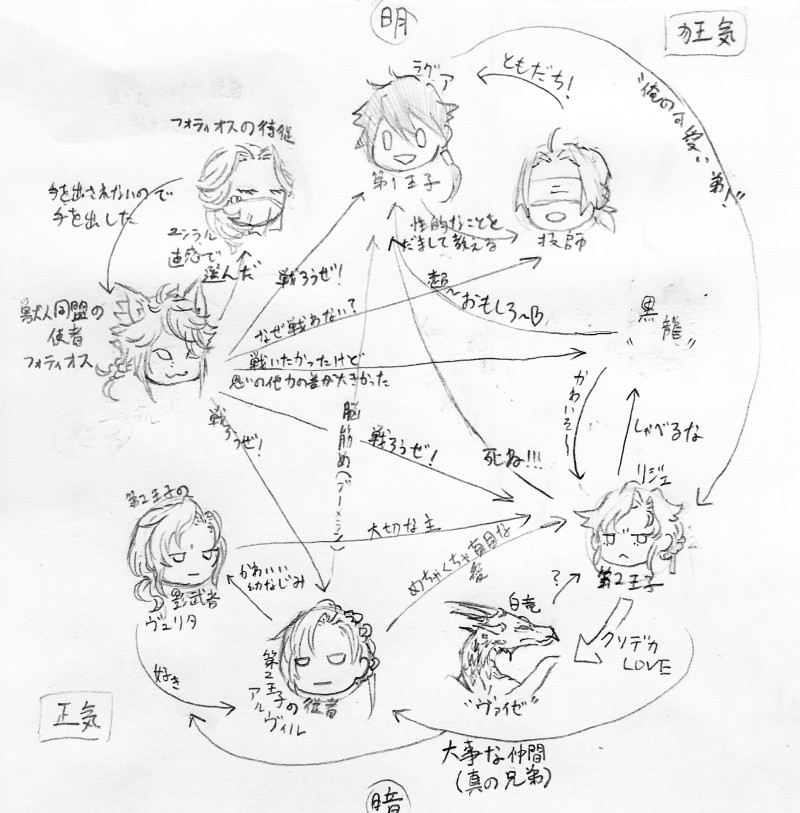 明
狂気
ラグア
ともだち!
"俺の可愛い弟!"
フォティオスの侍従
第1王子
手を出されないので
手を出した
性的なことを
だまして教える
技師
ユシラル
直感で
選んだ
戦ろうぜ!
超
〜おもしろ〜
黒龍
獣人同盟の
使者
フォティオス
なぜ戦わない?
戦いたかったけど
の他力の差が大きかった
かわいそ〜
しゃべるな
戦ろうぜ!
脳筋め(ブーメラン)
戦ろうぜ!
死ね!!!
リジェ
第2王子の
影武者
ヴェリタ
大切な主
めちゃくちゃ盲目な
愛
第2王子
かわいい
幼なじみ
白竜
?
クソデカ
LOVE
好き
第2王子の従者
アルヴィル
"ヴァイゼ"
正気
大事な仲間
(真の兄弟)
暗